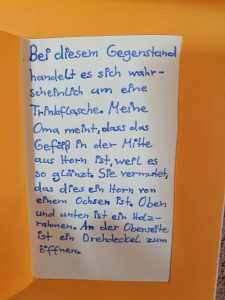 Bei diesem Gegenstand
handelt es sich wahr-
scheinlich um eine
Trinkflasche. Meine
Oma meint, dass das
Gefäß in der Mitte
aus Horn ist, weil es
so glänzt. Sie vermutet,
das dies ein Horn von
einem Ochsen ist. Oben
und unten ist ein Holz-
rahmen. An der Oberseite
ist ein Drehdeckel zum
öffnen.